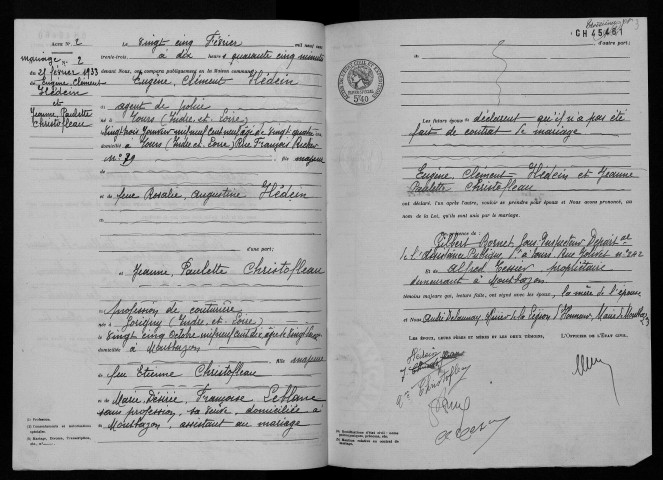 ACTE N.º 2
mariage n° 2
du 25 février 1933
Eugène, Clément
Hédein
et
Jeanne, Paulette
Christofleau
Le vingt cinq Février mil neuf cent
trente-trois, à dix heures quarante cinq minutes
devant Nous, ont comparu publiquement en la Maison commune
Eugène, Clément Hédein
agent de police
né à Tours (Indre et Loire)
le vingt trois Janvier mil neuf cent neuf âgé de vingt quatre
domicilié à Tours (Indre et Loire) Rue François Richer
N° 29 fils majeur
de
et de feue Rosalie, Augustine Hédein
d'une part;
et Jeanne, Paulette Christofleau
profession de couturière
née à (Indre et Loire)
le vingt cinq octobre mil neuf cent dix âgée de vingt deux
domiciliée à Montbazon
fille majeure
de feu Etienne Christofleau
et de Marie Désirée, Françoise Leblanc
sans profession, sa veuve, domiciliée à
Montbazon, assistant au mariage
(1) Profession.
CH45461
d'autre part;
Les futurs époux déclarent qu'il n'a pas été
fait de contrat de mariage
Eugène, Clément Hédein et Jeanne
Paulette Christofleau
ont déclaré, l'un après l'autre, vouloir se prendre pour époux et Nous avons prononcé, au
nom de la Loi, qu'ils sont unis par le mariage.
En présence de Gilbert Bornet Sous Inspecteur Départ.al
de l'Assistance Publique à Tours Rue N° 242
Et de Alfred Tessier propriétaire
demeurant à Montbazon
Témoins majeurs qui, lecture faite, ont signé avec les époux, la mère de l'épouse
et Nous André Delaunay Légion d'Honneur, Maire de Montbazon
LES ÉPOUX, LEURS PÈRES ET MÈRES ET LES DEUX TÉMOINS, L'OFFICIER DE L'ÉTAT CIVIL.
Hédein
Christofleau